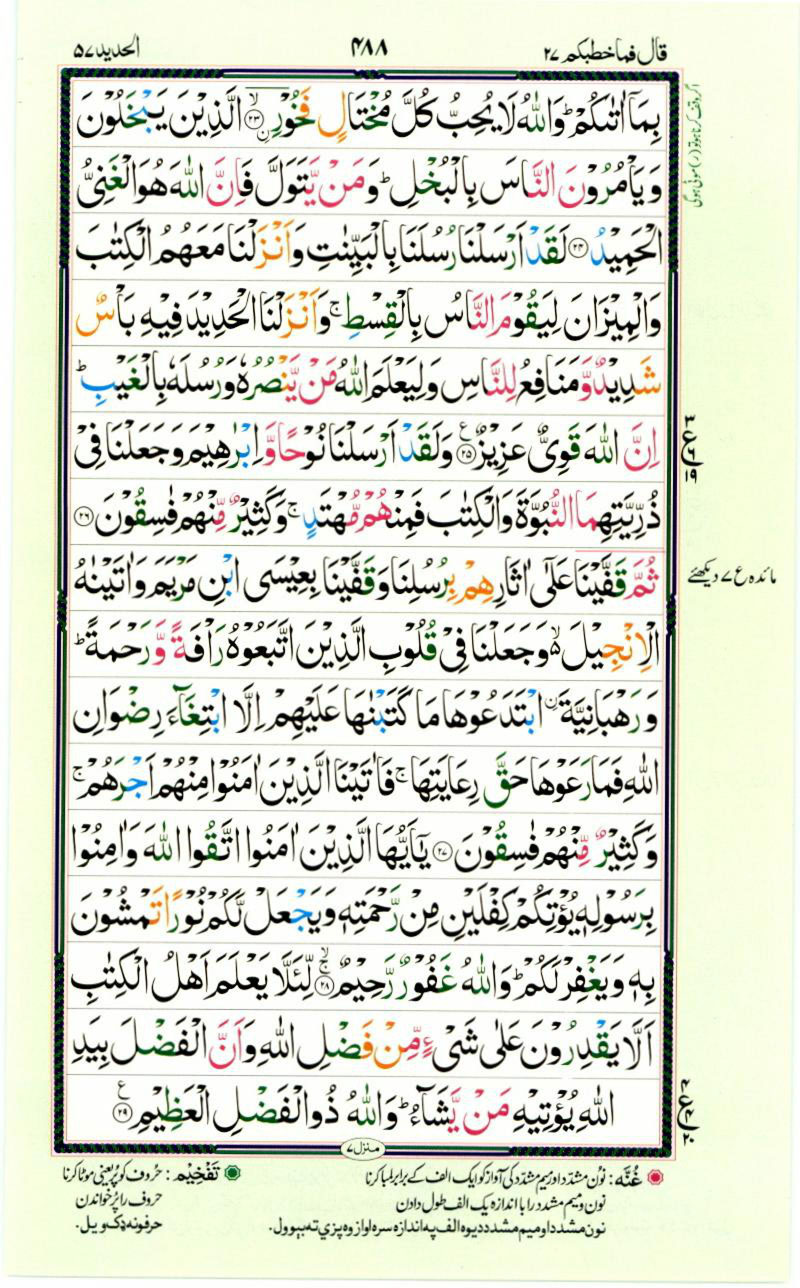 قال فما خطبكم ٢٧
٤٨٨
الحديد ٥٧
بِمَاۤ اٰتٰىكُمْ ؕ وَاللّٰهُ لَا يُحِبُّ كُلَّ مُخْتَالٍ فَخُوْرِ ۙ﴿۲۳﴾ الَّذِيْنَ يَبْخَلُوْنَ
وَيَاْمُرُوْنَ النَّاسَ بِالْبُخْلِ ؕ وَمَنْ يَّتَوَلَّ فَاِنَّ اللّٰهَ هُوَالْغَنِىُّ
الْحَمِيْدُ ﴿۲۴﴾ لَقَدْ اَرْسَلْنَا رُسُلَنَا بِالْبَيِّنٰتِ وَاَنْزَلْنَا مَعَهُمُ الْكِتٰبَ
وَالْمِيْزَانَ لِيَقُوْمَ النَّاسُ بِالْقِسْطِ ۚ وَاَنْزَلْنَا الْحَدِيْدَ فِيْهِ بَاْسٌ
شَدِيْدٌ وَّمَنَافِعُ لِلنَّاسِ وَلِيَعْلَمَ اللّٰهُ مَنْ يَّنْصُرُهٗ وَرُسُلَهٗ بِالْغَيْبِ ؕ
اِنَّ اللّٰهَ قَوِىٌّ عَزِيْزٌ ﴿۲۵﴾ ع وَلَقَدْ اَرْسَلْنَا نُوْحًا وَّاِبْرٰهِيْمَ وَجَعَلْنَا فِىْ
ذُرِّيَّتِهِمَا النُّبُوَّةَ وَالْكِتٰبَ فَمِنْهُمْ مُّهْتَدٍ ۚ وَكَثِيْرٌ مِّنْهُمْ فٰسِقُوْنَ ﴿۲۶﴾
ثُمَّ قَفَّيْنَا عَلٰٓى اٰثَارِهِمْ بِرُسُلِنَا وَقَفَّيْنَا بِعِيْسَى ابْنِ مَرْيَمَ وَاٰتَيْنٰهُ
الْاِنْجِيْلَ ۙ۬ وَجَعَلْنَا فِىْ قُلُوْبِ الَّذِيْنَ اتَّبَعُوْهُ رَاْفَةً وَّرَحْمَةً ؕ
وَرَهْبَانِيَّةَ ن ابْتَدَعُوْهَا مَا كَتَبْنٰهَا عَلَيْهِمْ اِلَّا ابْتِغَآءَ رِضْوَانِ
اللّٰهِ فَمَا رَعَوْهَا حَقَّ رِعَايَتِهَا ۚ فَاٰتَيْنَا الَّذِيْنَ اٰمَنُوْا مِنْهُمْ اَجْرَهُمْ ۚ
وَكَثِيْرٌ مِّنْهُمْ فٰسِقُوْنَ ﴿۲۷﴾ يٰۤاَيُّهَا الَّذِيْنَ اٰمَنُوا اتَّقُوا اللّٰهَ وَاٰمِنُوْا
بِرَسُوْلِهٖ يُؤْتِكُمْ كِفْلَيْنِ مِنْ رَّحْمَتِهٖ وَيَجْعَلْ لَّكُمْ نُوْرًا تَمْشُوْنَ
بِهٖ وَيَغْفِرْ لَكُمْ ؕ وَاللّٰهُ غَفُوْرٌ رَّحِيْمٌ ۙ﴿۲۸﴾ لِّئَلَّا يَعْلَمَ اَهْلُ الْكِتٰبِ
اَلَّا يَقْدِرُوْنَ عَلٰى شَىْءٍ مِّنْ فَضْلِ اللّٰهِ وَاَنَّ الْفَضْلَ بِيَدِ
اللّٰهِ يُؤْتِيْهِ مَنْ يَّشَآءُ ؕ وَاللّٰهُ ذُوالْفَضْلِ الْعَظِيْمِ ﴿۲۹﴾ ع
مائدہ ع ٧ دیکھئے
منزل ٧
غُنَّه: نون مشدد اور میم مشدد کی آواز کو ایک الف کے برابر لمبا کرنا
تَفْخِيْم: حروف کو پُر یعنی موٹا کرنا
نون و میم مشدد را با اندازه یک الف طول دادن
حروف را پُر خواندن
نون مشدد او میم مشدد دیوه الف په اندازه سره اواز وه پزي ته بېوول.
حرفونه ډک ویل.